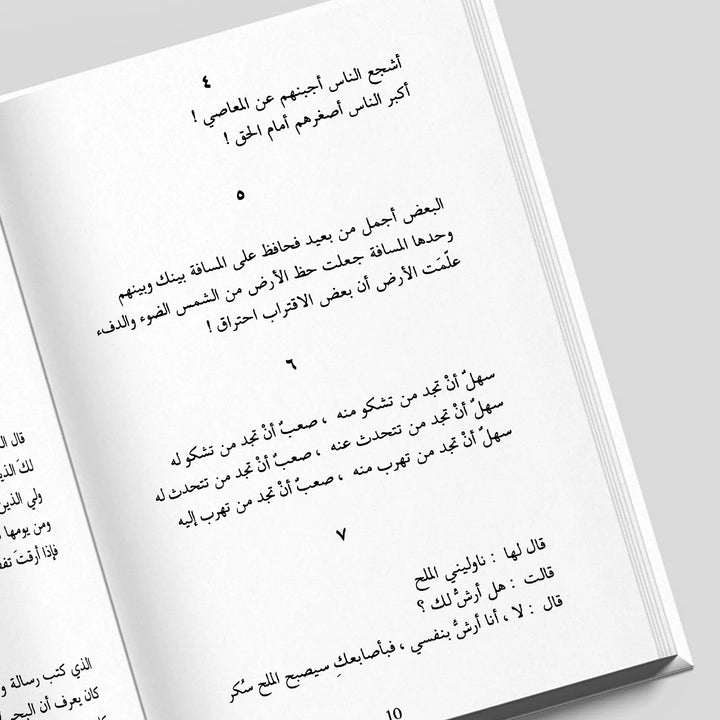 ٤
أشجع الناس أجبنهم عن المعاصي !
أكبر الناس أصغرهم أمام الحق !
٥
البعض أجمل من بعيد فحافظ على المسافة بينك وبينهم
وحدها المسافة جعلت حظ الأرض من الشمس الضوء والدفء
علّمَت الأرض أن بعض الاقتراب احتراق !
٦
سهلٌ أنْ تجد من تشكو منه ، صعبٌ أنْ تجد من تشكو له
سهلٌ أنْ تجد من تتحدث عنه ، صعبٌ أنْ تجد من تتحدث له
سهلٌ أنْ تجد من تهرب منه ، صعبٌ أنْ تجد من تهرب إليه
٧
قال لها : ناوليني الملح
قالت : هل أرشُّ لك ؟
قال : لا ، أنا أرشُّ بنفسي ، فبأصابعكِ سيصبح الملح سُكر
10
قال
لكَ
ولي الذين
ومن يومها
فإذا أرقتَ
الذي كتب رسالة
كان يعرف أن البحر